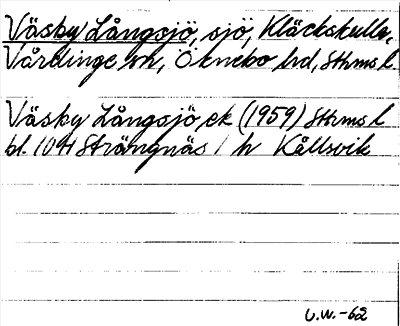 Väsby Långsjö, sjö, Kläckskulla,
Vårdinge sn, Öknebo hd, Sthms l
Väsby Långsjö ek (1959) Sthms l
bl. 109 Strängnäs / h Källsvik
U.W.-62